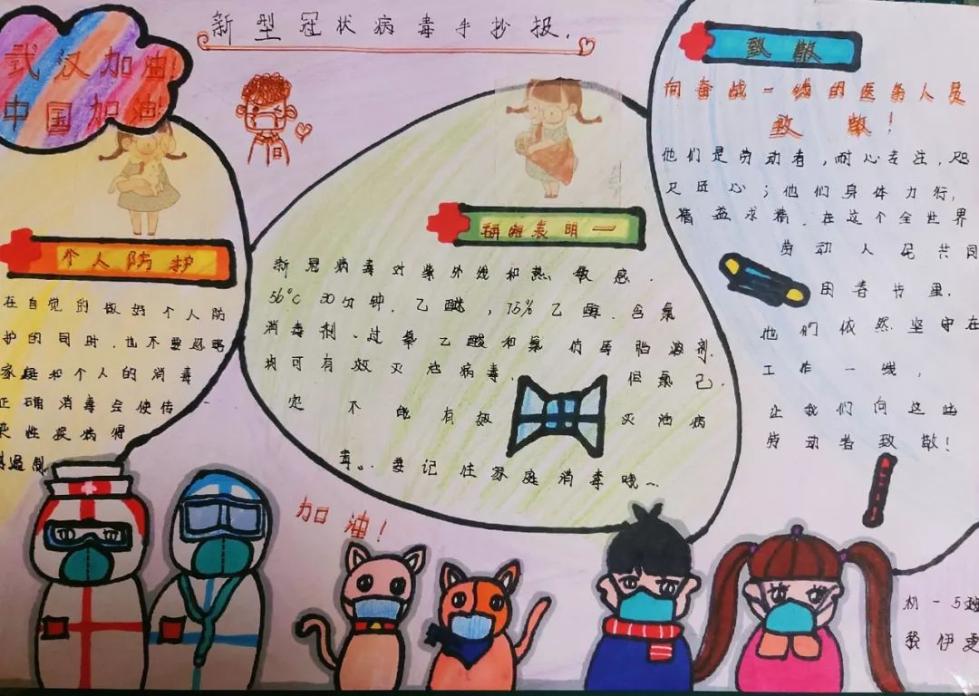 新型冠状病毒手抄报.
武汉加油!
中国加油!
致敬
向奋战一线的医务人员
致敬!
他们是劳动者,耐心专注,
尺匠心;他们身体力行,
精益求精.在这个全世界
劳动人民共同
的春节里,
他们依然坚守在
工作一线,
让我们向这些
劳动者致敬!
研究表明一
新冠病毒对紫外线和热敏感.
56°C 30分钟,乙醚,75%乙醇.含氯
消毒剂、过氧乙酸和氯仿等脂溶剂.
均可有效灭活病毒. 但氯己
定不能有效灭活病
毒。要记住家庭消毒哦~
个人防护
在自觉的做好个人防
护的同时,也不要忽略
家庭和个人的消毒
正确消毒会使传
染性疾病得
加油!
初一5班